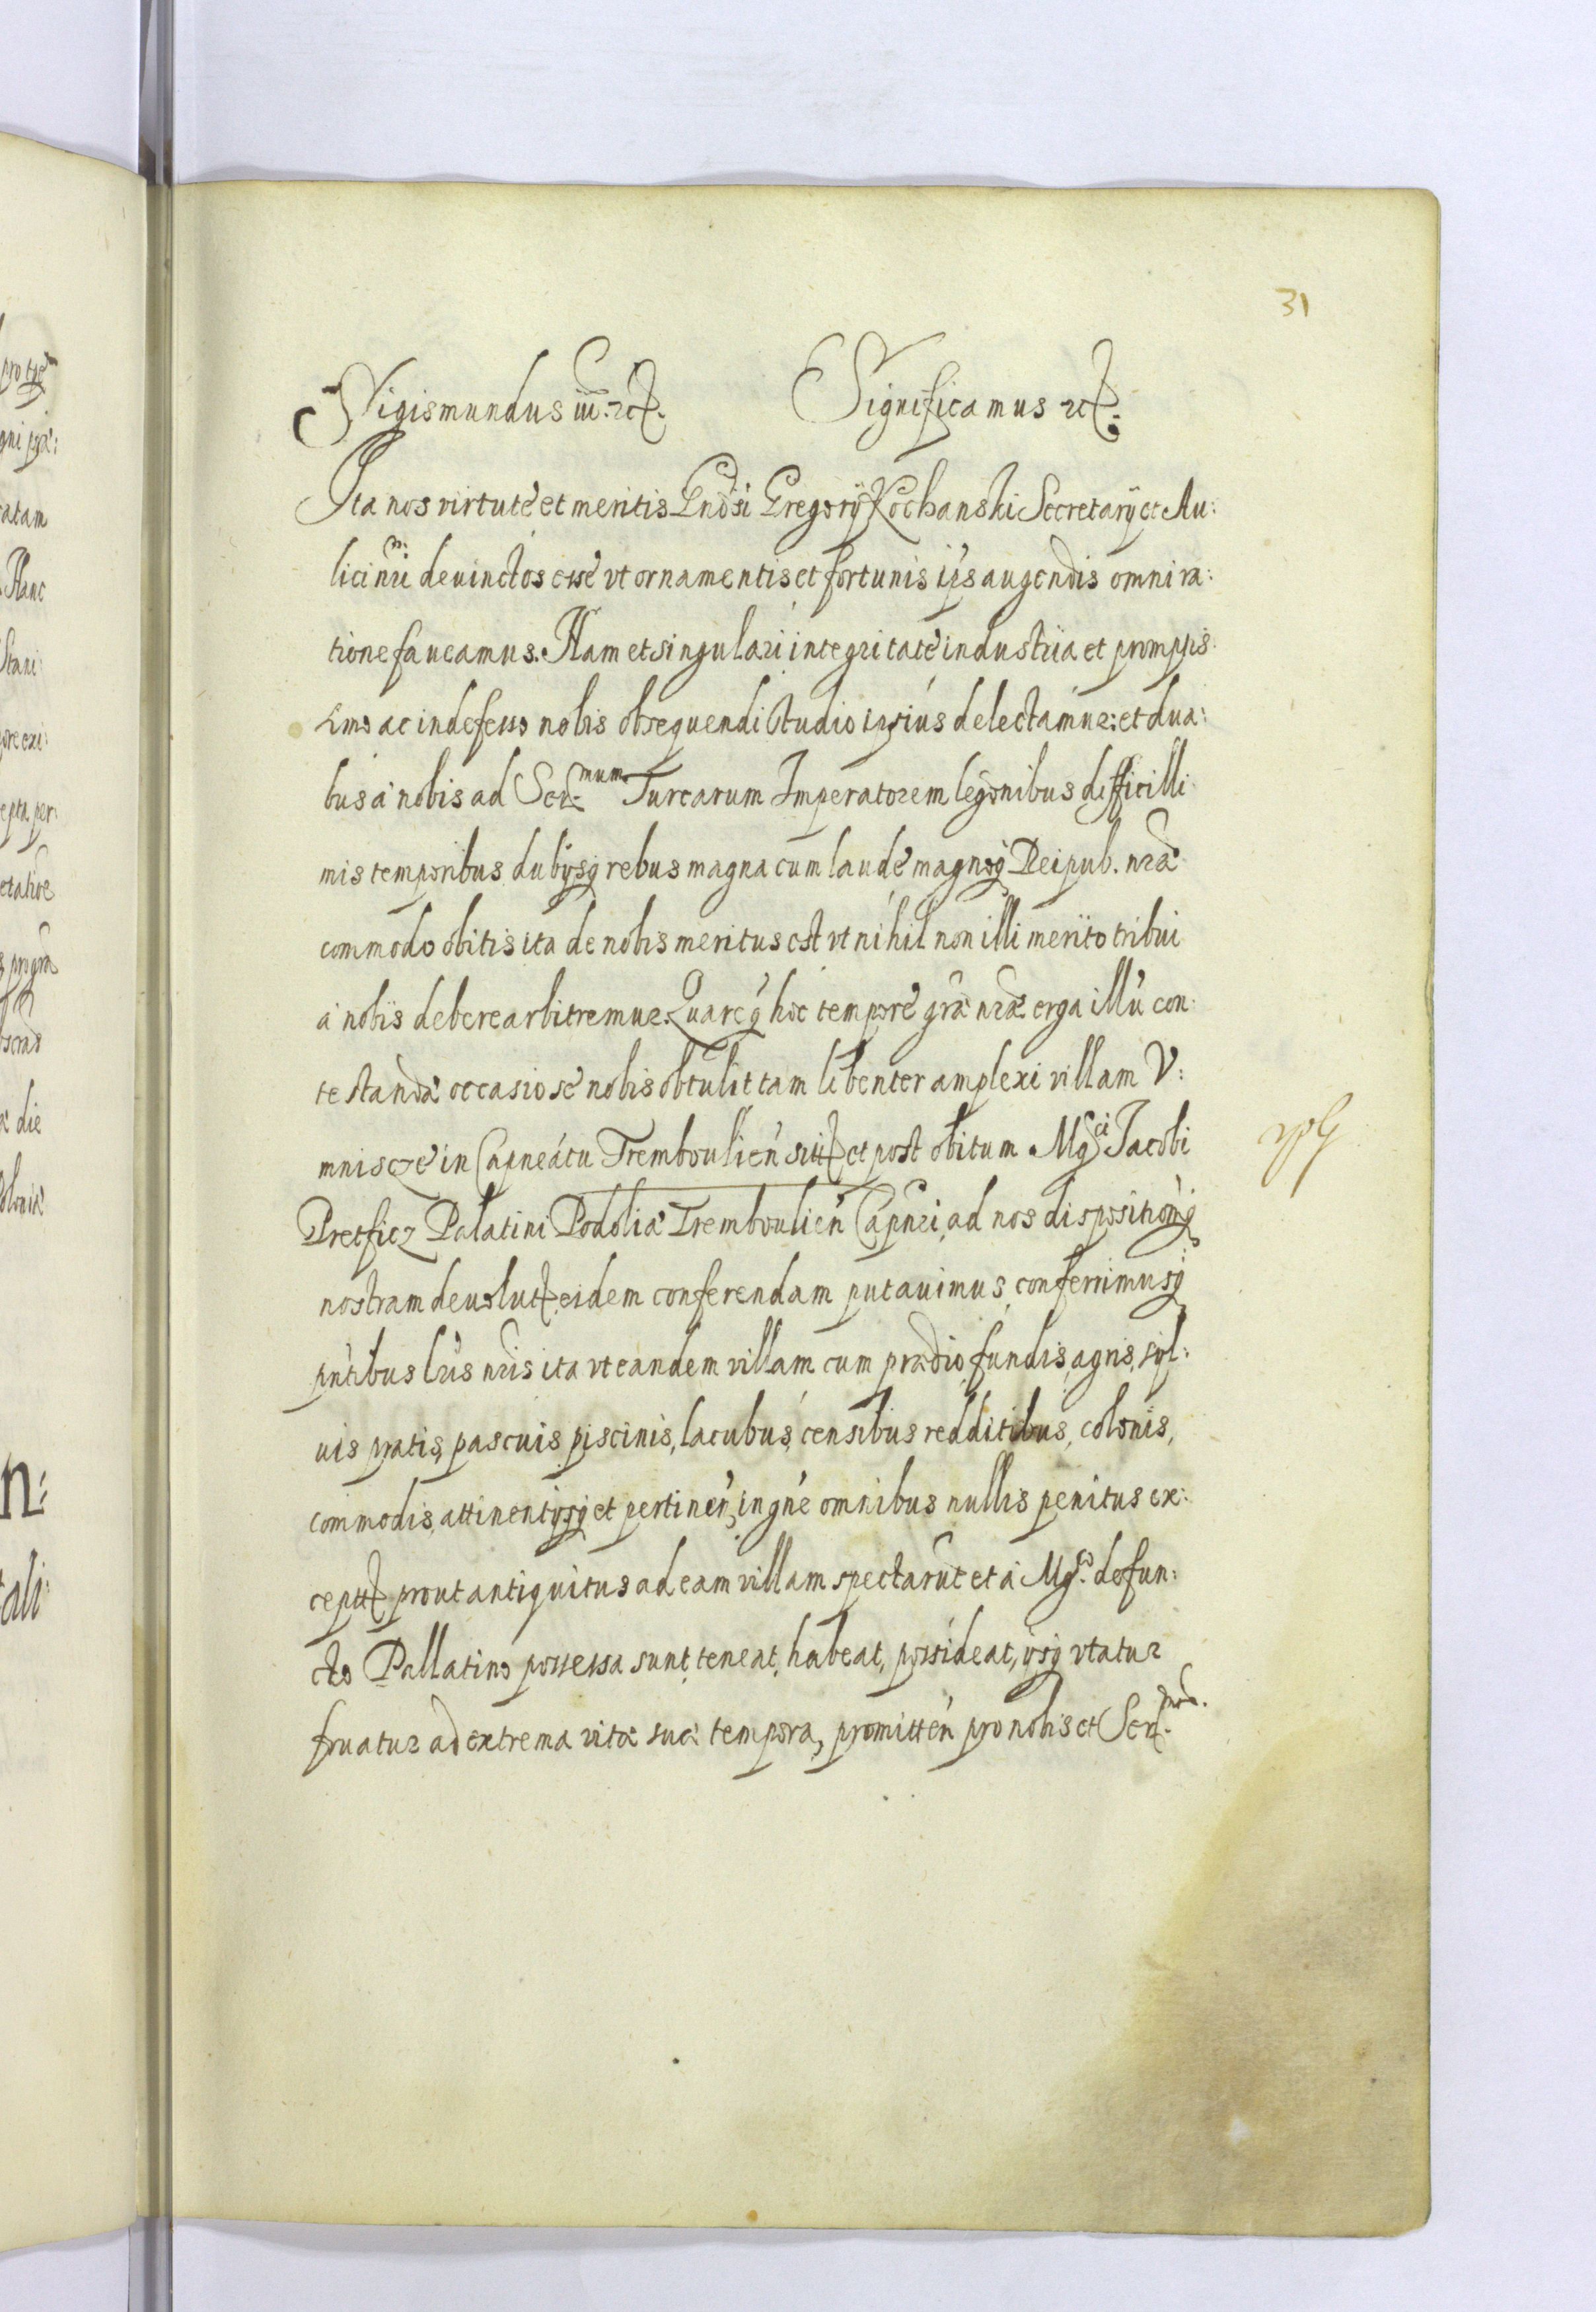 31
Sigismundus iii. etc. Significamus etc.
Ita nos virtute et meritis Gnosi Gregorij Kochanski Secretarij et Au:
lici nri deuinctos esse vt ornamentis et fortunis ips augendis omni ra:
tione faueamus. Nam et singulari integritate industria et promptis:
simo ac indefesso nobis obsequendi studio ipsius delectamur: et dua:
bus a nobis ad Ser:mum Turcarum Imperatorem legonibus difficilli:
mis temporibus dubijsq rebus magna cum laude magnoq Reipub. nræ
commodo obitis ita de nobis meritus est vt nihil non illi merito tribui
a nobis debere arbitremur. Quare q hoc tempore græ nræ erga illu con:
testandæ occasio se nobis obtulit tam libenter amplexi villam V:
mniscze in Capneatu Tremboulien sitt et post obitum Mgci Jacobi
Pretficz Palatini Podoliæ Tremboulien Capnei, ad nos dispositionq
nostram deuolutt eidem conferendam putauimus, conferrimusq
pntibus lris nris ita vt eandem villam cum prædio, fundis, agris, syl:
uis pratis, pascuis piscinis, lacubus, censibus redditibus, colonis,
commodis, attinentijsq et pertinen, in gne omnibus nullis penitus ex:
ceptt prout antiquitus ad eam villam spectarut et a Mgco defun:
cto Pallatino possessa sunt, teneat, habeat, possideat, ijsq vtatur
fruatur ad extrema vitæ suæ tempora, promitten pro nobis et Ser: